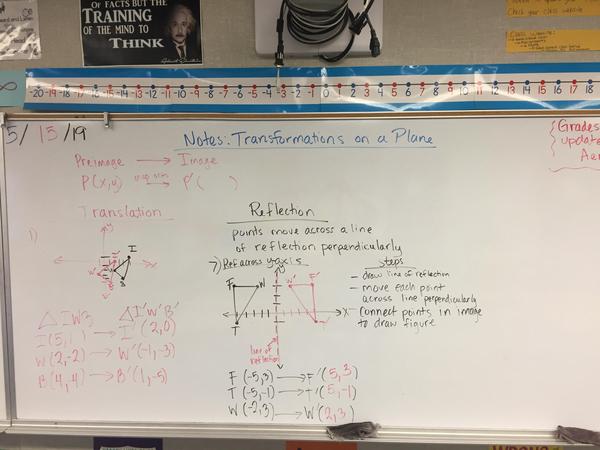 OF FACTS BUT THE
TRAINING
OF THE MIND TO
THINK
Check your class website
-20 -19 -18 -17 -16 -15 -14 -13 -12 -11 -10 -9 -8 -7 -6 -5 -4 -3 -2 -1 0 1 2 3 4 5 6 7 8 9 10 11 12 13 14 15 16 17 18
5/15/19
Notes: Transformations on a Plane
Grades
update
Preimage → Image
P(x,y) → P'( )
Translation
1)
I
B
W'
△IWB △I'W'B'
I(5,1) → I'(2,0)
W(2,-2) → W'(-1,-3)
B(4,4) → B'(1,-5)
Reflection
points move across a line
of reflection perpendicularly
Ref across y-axis
F W W' F'
T
x
y
line of
reflection
F(-5,3) → F'(5,3)
T(-5,-1) → T'(5,-1)
W(-2,3) → W'(2,3)
steps
- draw line of reflection
- move each point
across line perpendicularly
- connect points in image
to draw figure